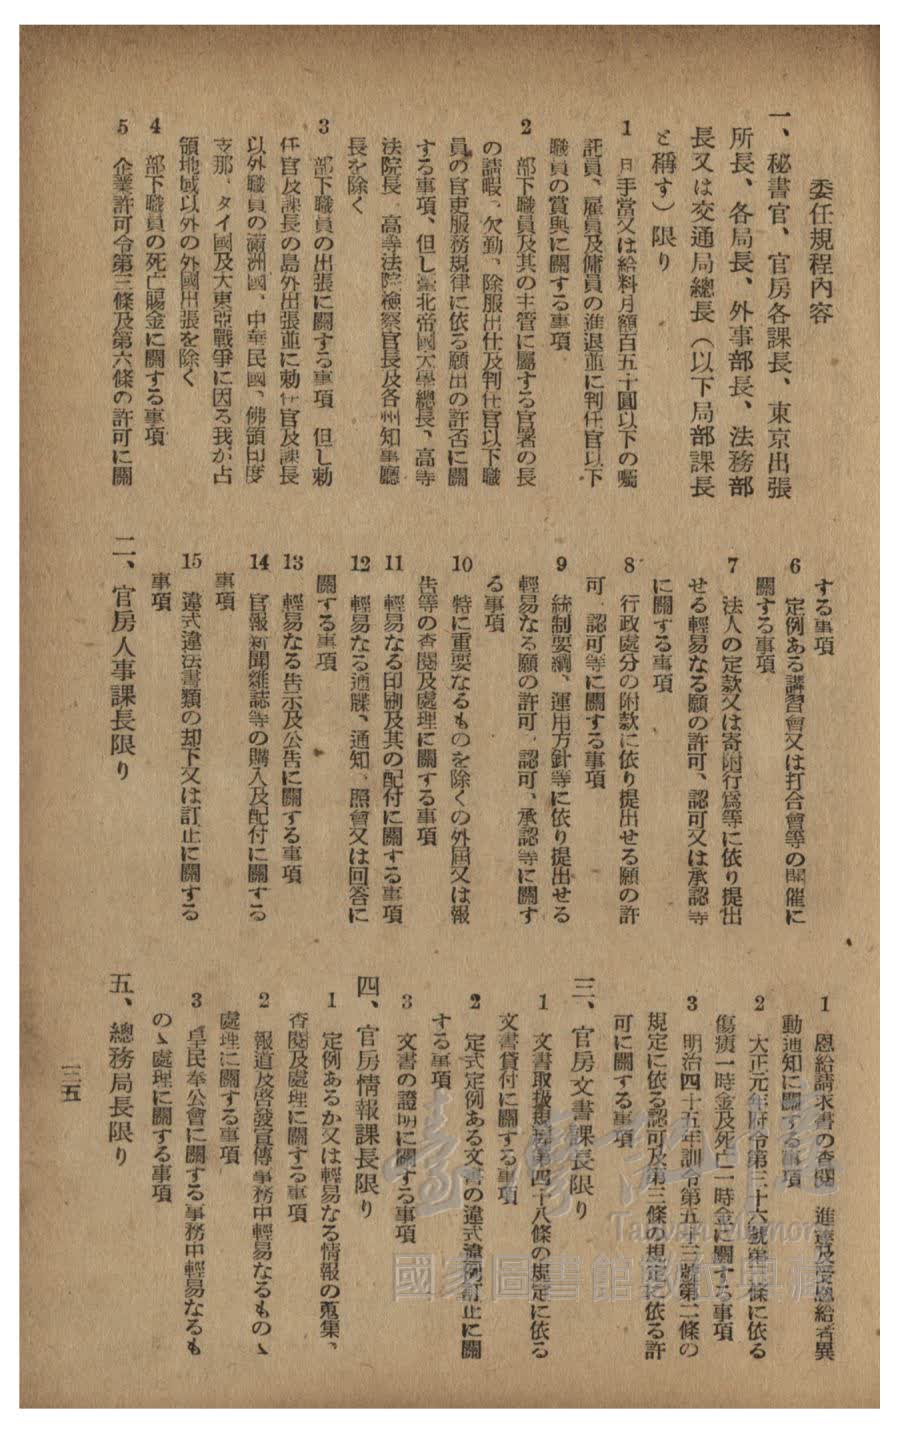 委任規程內容
一、秘書官、官房各課長、東京出張
所長、各局長、外事部長、法務部
長又は交通局總長（以下局部課長
と稱す）限り
1　月手當又は給料月額百五十圓以下の囑
託員、雇員及傭員の進退並に判任官以下
職員の賞與に關する事項
2　部下職員及其の主管に屬する官署の長
の請暇、欠勤、除服出仕及判任官以下職
員の官吏服務規律に依る願出の許否に關
する事項、但し臺北帝國大學總長、高等
法院長、高等法院檢察官長及各州知事廳
長を除く
3　部下職員の出張に關する事項　但し勅
任官及課長の島外出張並に勅任官及課長
以外職員の滿洲國、中華民國、佛領印度
支那、タイ國及大東亞戰爭に因る我が占
領地域以外の外國出張を除く
4　部下職員の死亡賜金に關する事項
5　企業許可令第三條及第六條の許可に關
する事項
6　定例ある講習會又は打合會等の開催に
關する事項
7　法人の定款又は寄附行爲等に依り提出
せる輕易なる願の許可、認可又は承認等
に關する事項
8　行政處分の附款に依り提出せる願の許
可、認可等に關する事項
9　統制要綱、運用方針等に依り提出せる
輕易なる願の許可、認可、承認等に關す
る事項
10　特に重要なるものを除くの外屆又は報
告等の査閱及處理に關する事項
11　輕易なる印刷及其の配付に關する事項
12　輕易なる通牒、通知、照會又は回答に
關する事項
13　輕易なる告示及公告に關する事項
14　官報新聞雜誌等の購入及配付に關する
事項
15　違式違法書類の却下又は訂正に關する
事項
二、官房人事課長限り
1　恩給請求書の査閱、進達及受恩給者異
動通知に關する事項
2　大正元年府令第三十六號第二條に依る
傷痍一時金及死亡一時金に關する事項
3　明治四十五年訓令第五十三號第二條の
規定に依る認可及第三條の規定に依る許
可に關する事項
三、官房文書課長限り
1　文書取扱規程第四十八條の規定に依る
文書貸付に關する事項
2　定式定例ある文書の違式違例訂正に關
する事項
3　文書の證明に關する事項
四、官房情報課長限り
1　定例あるか又は輕易なる情報の蒐集、
査閱及處理に關する事項
2　報道及啓發宣傳事務中輕易なるものゝ
處理に關する事項
3　皇民奉公會に關する事務中輕易なるも
のゝ處理に關する事項
五、總務局長限り
三五
臺灣記憶
Taiwan Memory
國家圖書館數位典藏